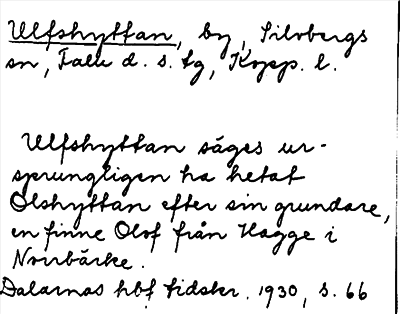 Ulfshyttan, by, Silvbergs
sn, Falu d. s. tg, Kopp. l.
Ulfshyttan säges ur-
sprungligen ha hetat
Olshyttan efter sin grundare,
en finne Olof från Hagge i
Norrbärke.
Dalarnas hbf tidskr. 1930, s. 66